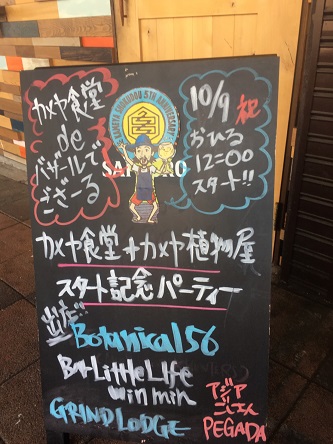 カメヤ食堂
de
バザールで
ござーる
10/9 祝
おひる
12:00
スタート!!
KAMEYA SHOKUDOU 5TH ANNIVERSARY
カメヤ食堂+カメヤ植物屋
スタート記念パーティー
出店!!
Botanical 56
But Little Life
win min
GRIND LODGE
アジア
ごはん
PEGADA